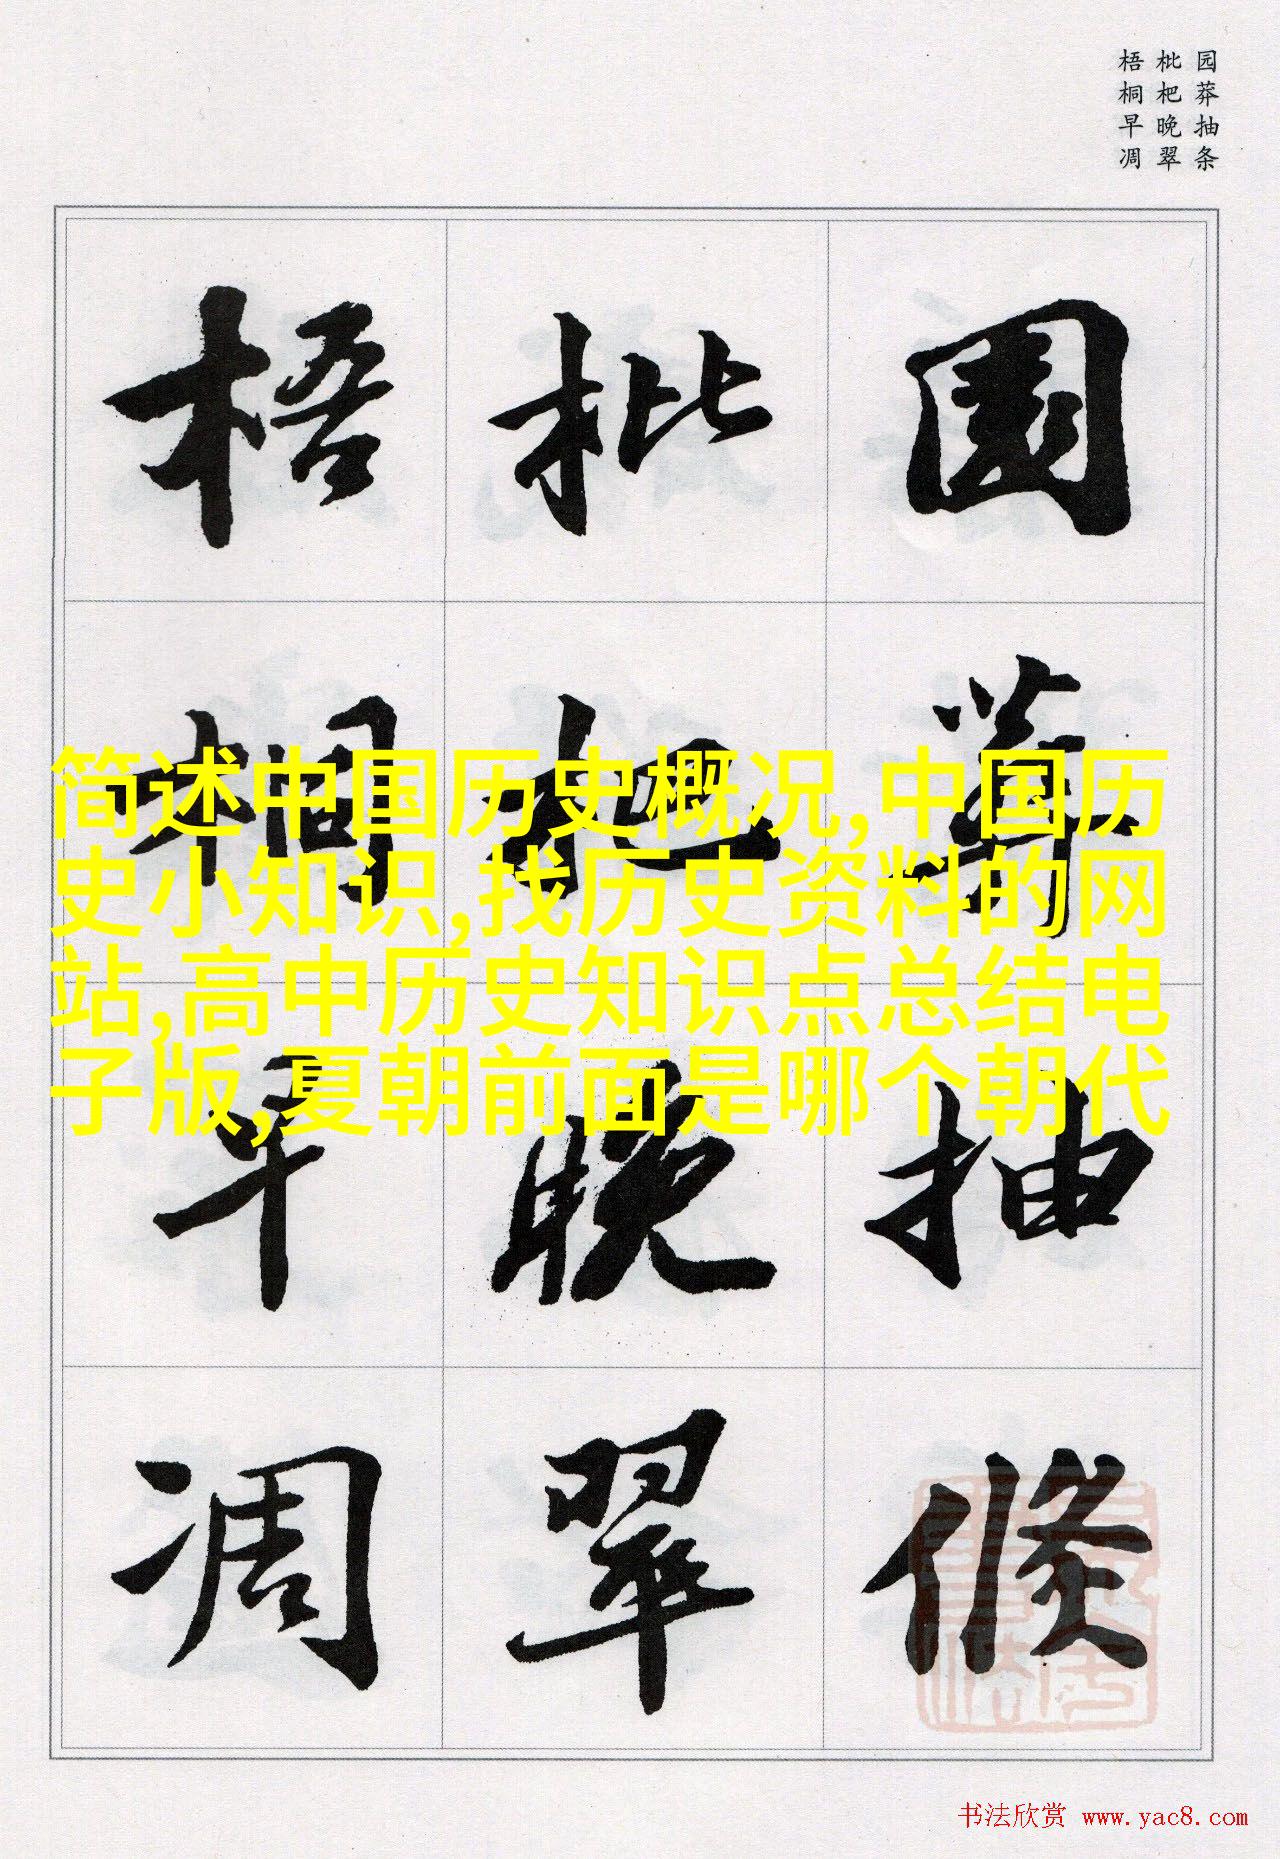 园莽抽条
枇杷晚翠
梧桐早凋
園莽抽條
枇杷晚翠
梧桐早凋
简述中国历史概况,中国历
史小知识,找历史资料的网
站,高中历史知识点总结电
子版,夏朝前面是哪个朝代
书法欣赏 www.yac8.com